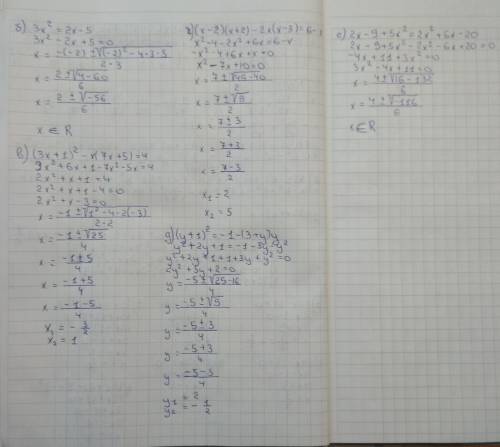 б) 3x² = 2x-5
3x² - 2x + 5 = 0
x = -(-2) ± √(-2)² - 4·3·5 / 2·3
x = 2 ± √4-60 / 6
x = 2 ± √-56 / 6
x ∈ R
в) (3x+1)² - x(7x+5) = 4
9x² + 6x + 1 - 7x² - 5x = 4
2x² + x + 1 = 4
2x² + x + 1 - 4 = 0
2x² + x - 3 = 0
x = -1 ± √1² - 4·2·(-3) / 2·2
x = -1 ± √25 / 4
x = -1 ± 5 / 4
x = -1 + 5 / 4
x = -1 - 5 / 4
x₁ = - 3/2
x₂ = 1
г) (x-2)(x+2) - 2x(x-3) = 6-
x² - 4 - 2x² + 6x = 6-x
x² - 7x + 10 = 0
x = 7 ± √49-40 / 2
x = 7 ± √9 / 2
x = 7 ± 3 / 2
x = 7+3 / 2
x = 7-3 / 2
x₁ = 2
x₂ = 5
д) (y+1)² = -1-(3+y)y
y² + 2y + 1 = -1 - 3y - y²
y² + 2y + 1 + 1 + 3y + y² = 0
2y² + 5y + 2 = 0
y = -5 ± √25-16 / 4
y = -5 ± 3 / 4
y = -5+3 / 4
y = -5-3 / 4
y₂ = - 1/2
е) 2x - 9 + 5x² = 2x² + 6x - 20
2x - 9 + 5x² - 2x² - 6x + 20 = 0
-4x + 11 + 3x² = 0
3x² - 4x + 11 = 0
x = 4 ± √16-132 / 6
x = 4 ± √-116 / 6
x ∈ R